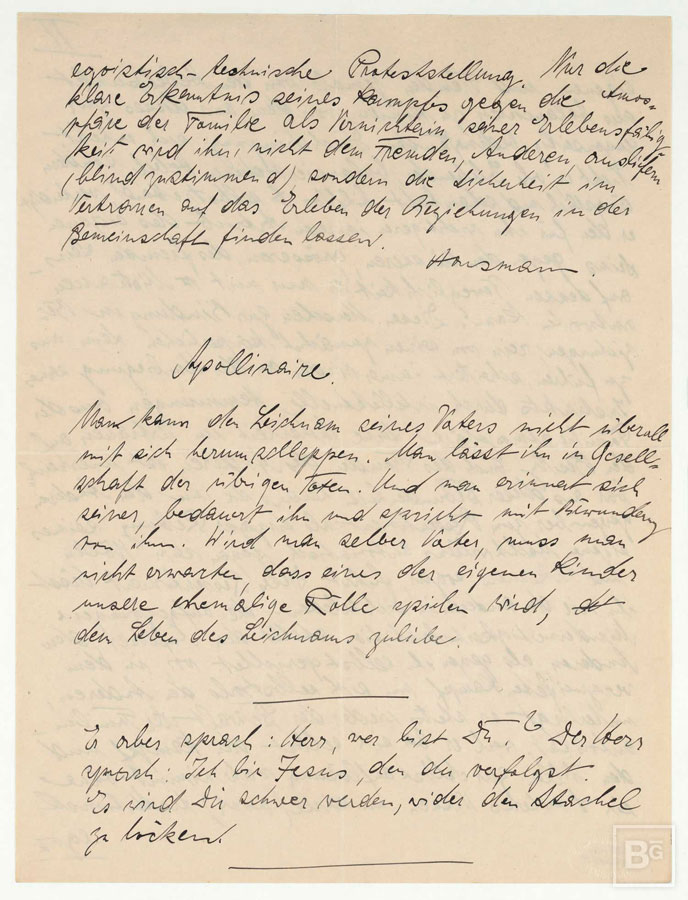 egoistisch-technische Proteststellung. Nur die
klare Erkenntnis seines Kampfes gegen die Atmos-
phäre der Familie als Vernichterin seiner Erlebensfähig
keit wird ihn, nicht dem Fremden, Anderen, ausliefern
(blind zustimmend) sondern die Sicherheit im
Vertrauen auf das Erleben der Beziehungen in der
Gemeinschaft finden lassen.
Hausmann.
Apollinaire.
Man kann den Leichnam seines Vaters nicht überall
mit sich herumschleppen. Man lässt ihn in Gesell-
schaft der übrigen Toten. Und man erinnert sich
seiner, bedauert ihn und spricht mit Bewunderung
von ihm. Wird man selber Vater, muss man
nicht erwarten, dass eines der eigenen Kinder
unsere ehemalige Rolle spielen wird,
dem Leben des Leichnams zuliebe.
Er aber sprach: Herr, wer bist Du? Der Herr
sprach: Ich bin Jesus, den du verfolgst.
Es wird Dir schwer werden, wider den Stachel
zu löcken.
BG